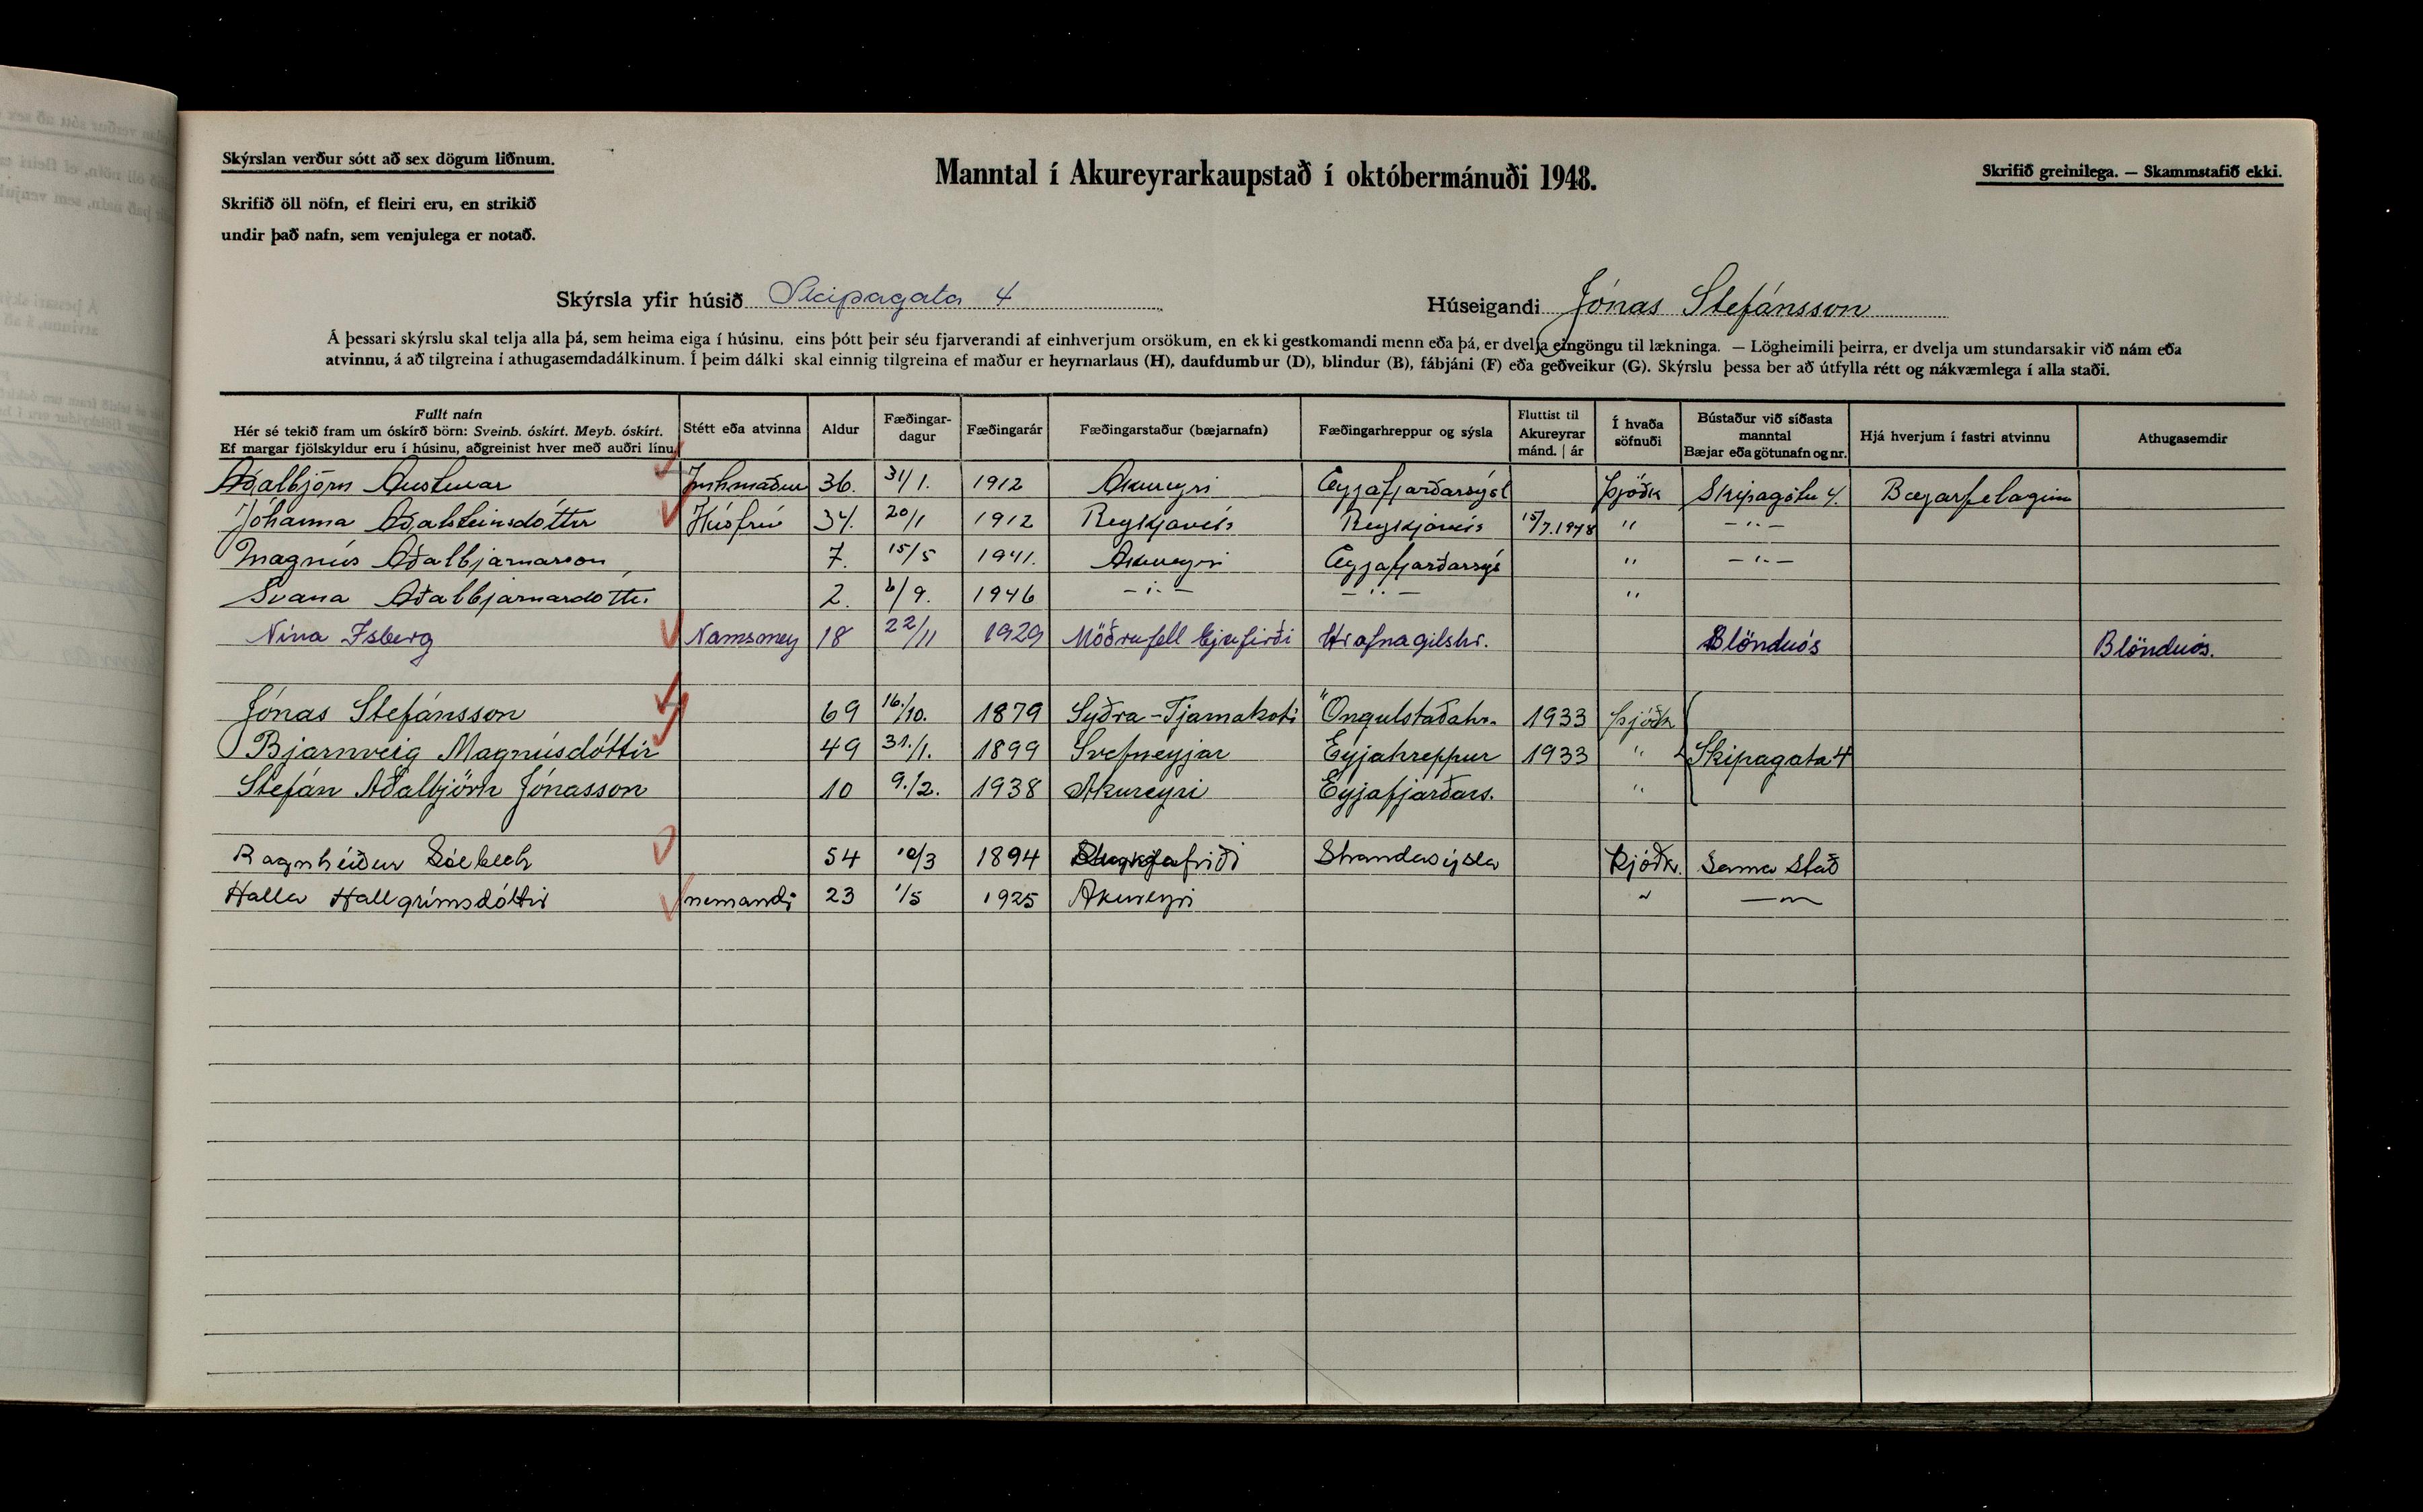 Skýrslan verður sótt að sex dögum liðnum.
Skrifið öll nöfn, ef fleiri eru, en strikið
undir það nafn, sem venjulega er notað.
Manntal í Akureyrarkaupstað í októbermánuði 1948.
Skrifið greinilega. — Skammstafið ekki.
Skýrsla yfir húsið Skipagata 4
Húseigandi Jónas Stefánsson
Á þessari skýrslu skal telja alla þá, sem heima eiga í húsinu, eins þótt þeir séu fjarverandi af einhverjum orsökum, en ekki gestkomandi menn eða þá, er dvelja eingöngu til lækninga. — Lögheimili þeirra, er dvelja um stundarsakir við nám eða
atvinnu, á að tilgreina í athugasemdadálkinum. Í þeim dálki skal einnig tilgreina ef maður er heyrnarlaus (H), daufdumbur (D), blindur (B), fábjáni (F) eða geðveikur (G). Skýrslu þessa ber að útfylla rétt og nákvæmlega í alla staði.
Fullt nafn
Hér sé tekið fram um óskírð börn: Sveinb. óskírt. Meyb. óskírt.
Ef margar fjölskyldur eru í húsinu, aðgreinist hver með auðri línu.
Stétt eða atvinna
Aldur
Fæðingar-
dagur
Fæðingarár
Fæðingarstaður (bæjarnafn)
Fæðingarhreppur og sýsla
Fluttist til
Akureyrar
mánd. | ár
Í hvaða
söfnuði
Bústaður við síðasta
manntal
Bæjar eða götunafn og nr.
Hjá hverjum í fastri atvinnu
Athugasemdir
Aðalbjörn Austmar 36. 31/1. 1912 Akureyri Eyjafjarðarsýsl Þjóðk Skipagötu 4. Bæjarfelaginu
Jóhanna Aðalsteinsdóttir Húsfrú 34. 20/1 1912 Reykjavík Reykjavík 15/7.1948 " — " —
Magnús Aðalbjarnarson 7. 15/5 1941. Akureyri Eyjafjarðarsýs " — " —
Svana Aðalbjarnardóttir 2. 6/9. 1946 — " — — " — "
Nína Ísberg Namsmey 18 22/11 1929 Möðrufell Eyjafirði Hrafnagilshr. Blönduós Blönduós.
Jónas Stefánsson 69 16./10. 1879 Syðra-Tjarnakoti Öngulstaðahr. 1933 Þjóðk
Bjarnveig Magnúsdóttir 49 31./1. 1899 Svefneyjar Eyjahreppur 1933 " Skipagata 4
Stefán Aðalbjörn Jónasson 10 9./2. 1938 Akureyri Eyjafjarðars. "
Ragnheiður Söebech 54 10/3 1894 Strandasýsla Þjóðk. Sama stað
Halla Hallgrímsdóttir nemandi 23 1/5 1925 Akureyri " — " —